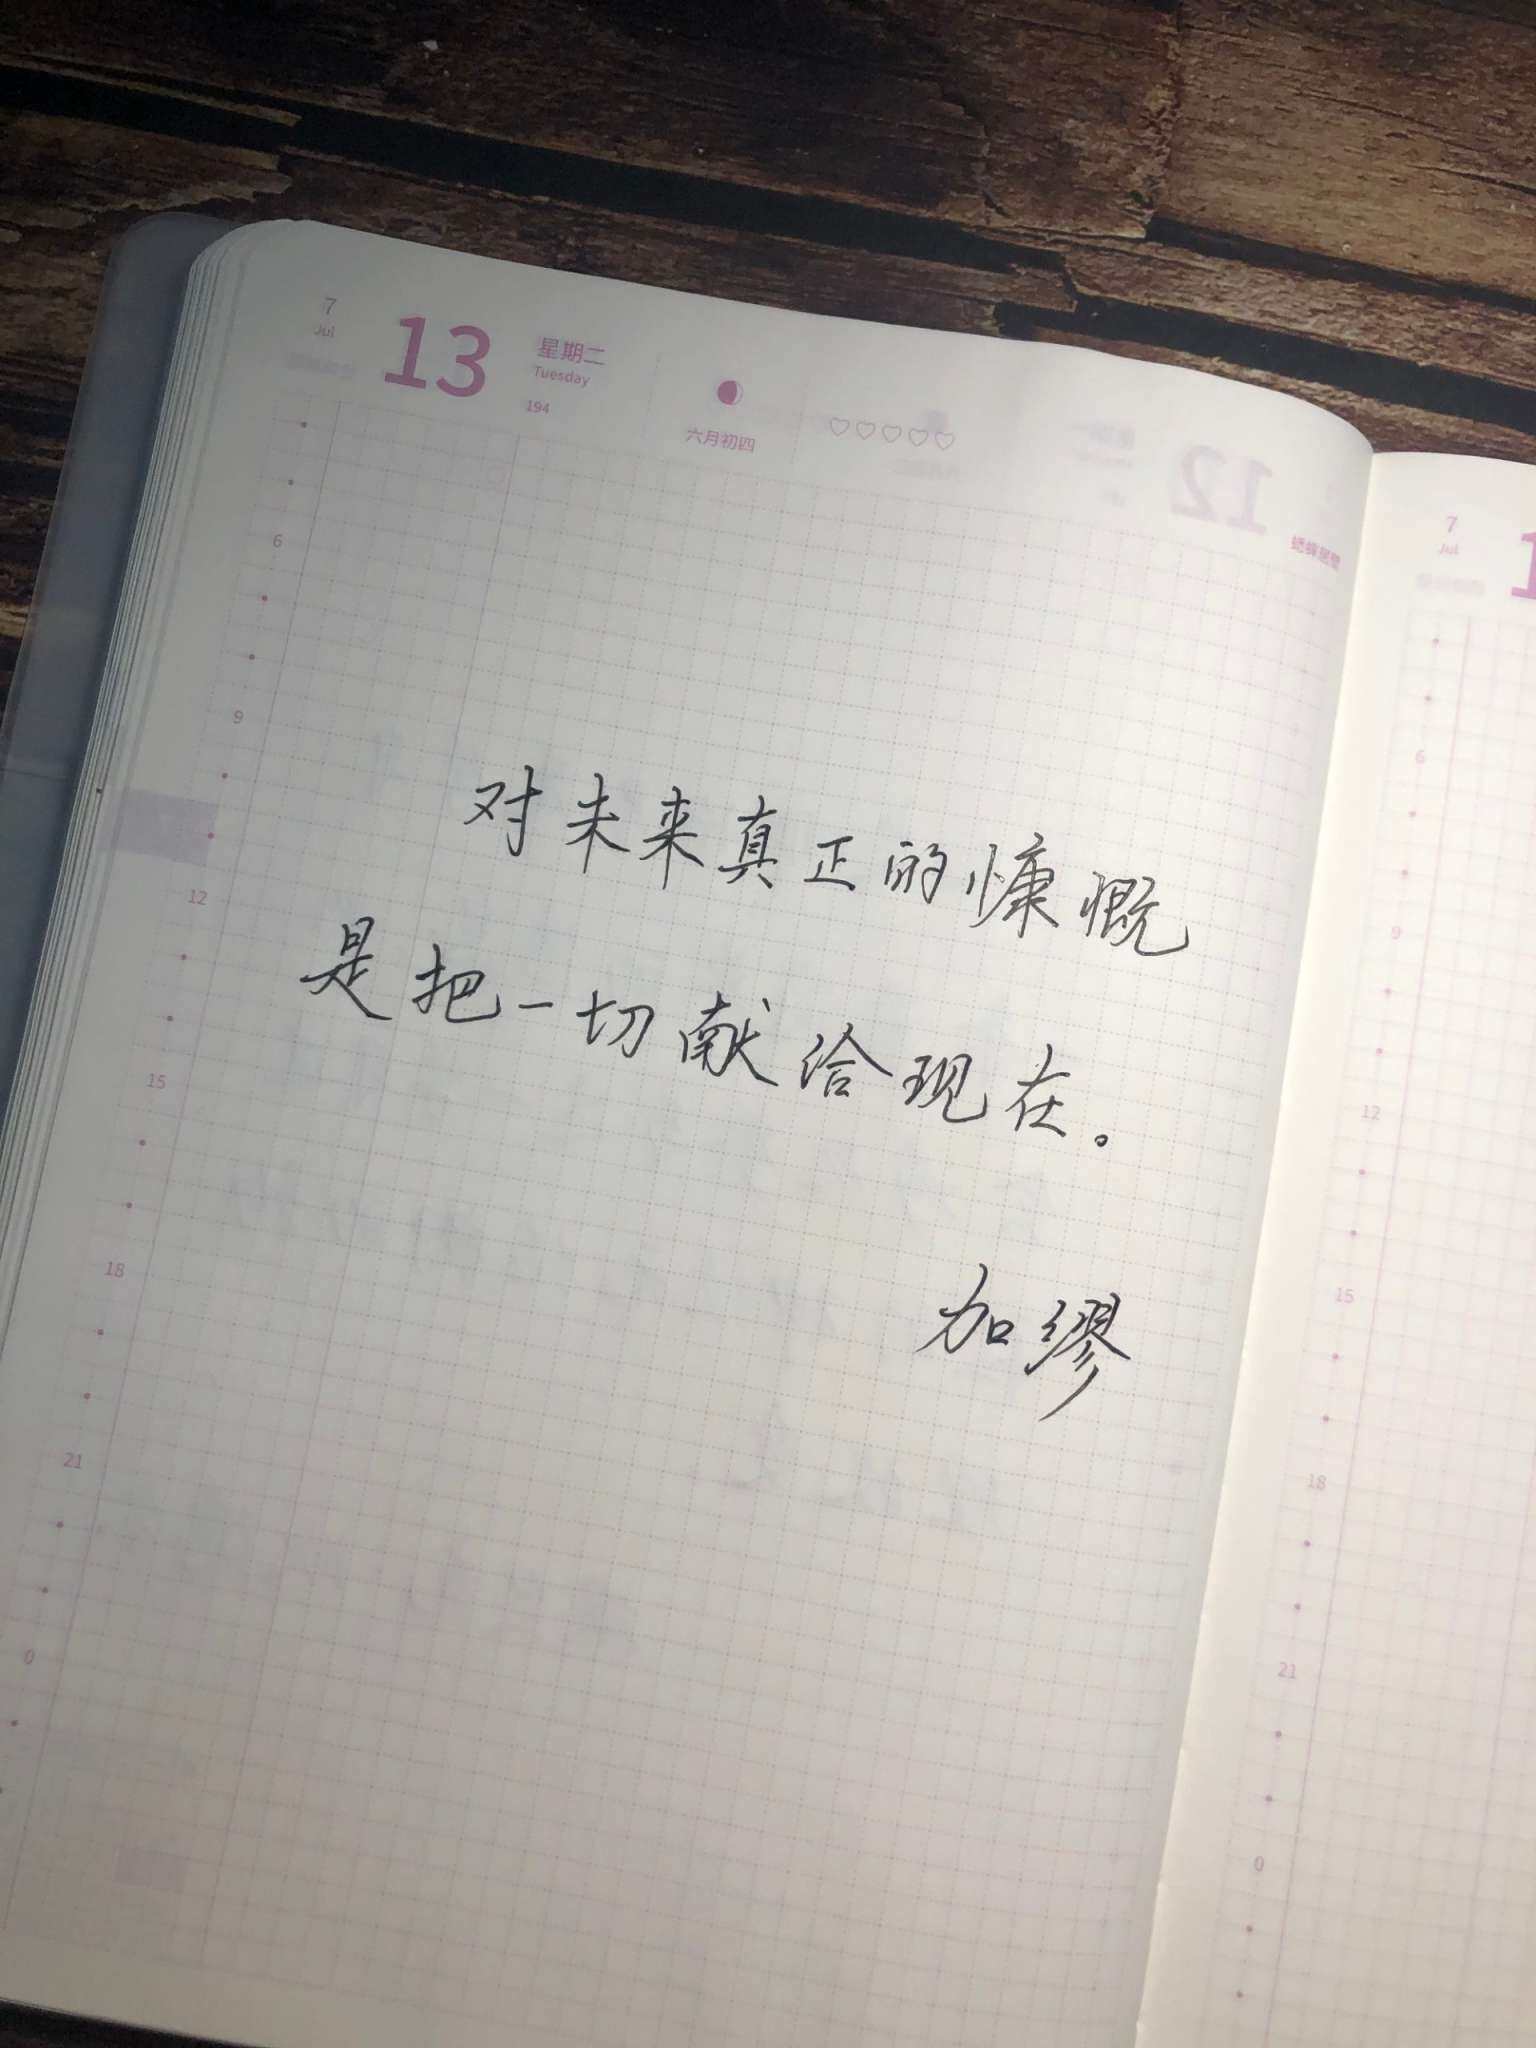 7
Jul
13
星期二
Tuesday
194
六月初四
12
蟋蟀居壁
6
9
12
15
18
21
0
对未来真正的慷慨
是把一切献给现在。
加缪
7
Jul
6
9
12
15
18
21
0